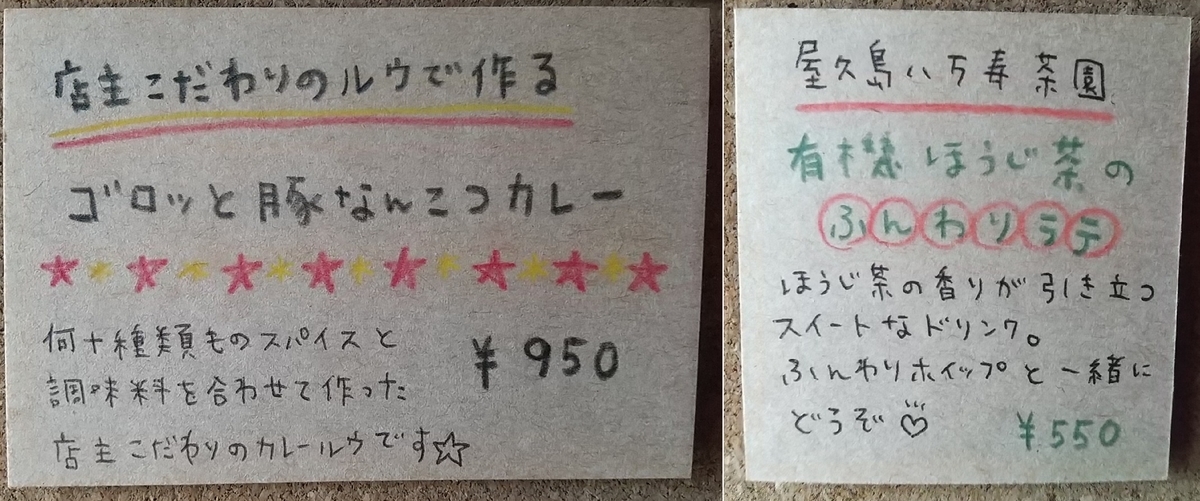 店主こだわりのルウで作る
ゴロッと豚なんこつカレー
何十種類ものスパイスと
調味料を合わせて作った
店主こだわりのカレールウです☆
¥950
屋久島八万寿茶園
有機ほうじ茶の
ふんわりラテ
ほうじ茶の香りが引き立つ
スイートなドリンク。
ふんわりホイップと一緒に
どうぞ♡
¥550